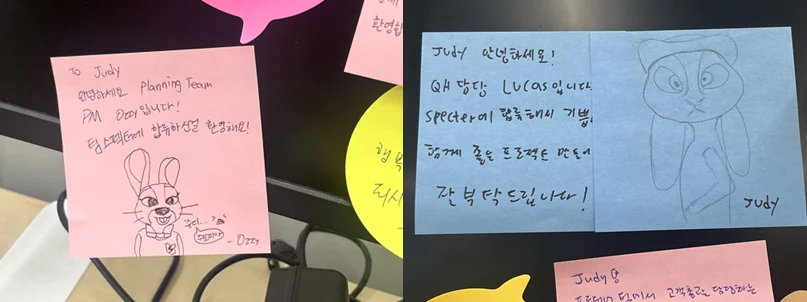 To Judy
안녕하세요 Planning Team
PM Ozzy입니다!
팀스펙터에 합류하신걸 환영해요!
주디...
주토피아
-Ozzy
환영합
행복
되시
Judy 안녕하세요!
QA 담당 Lucas입니다
specter에 합류해서 기쁩
함께 좋은 프로젝트 만들어
잘 부탁드립니다!
Judy
Judy님
고객총괄 담당하는